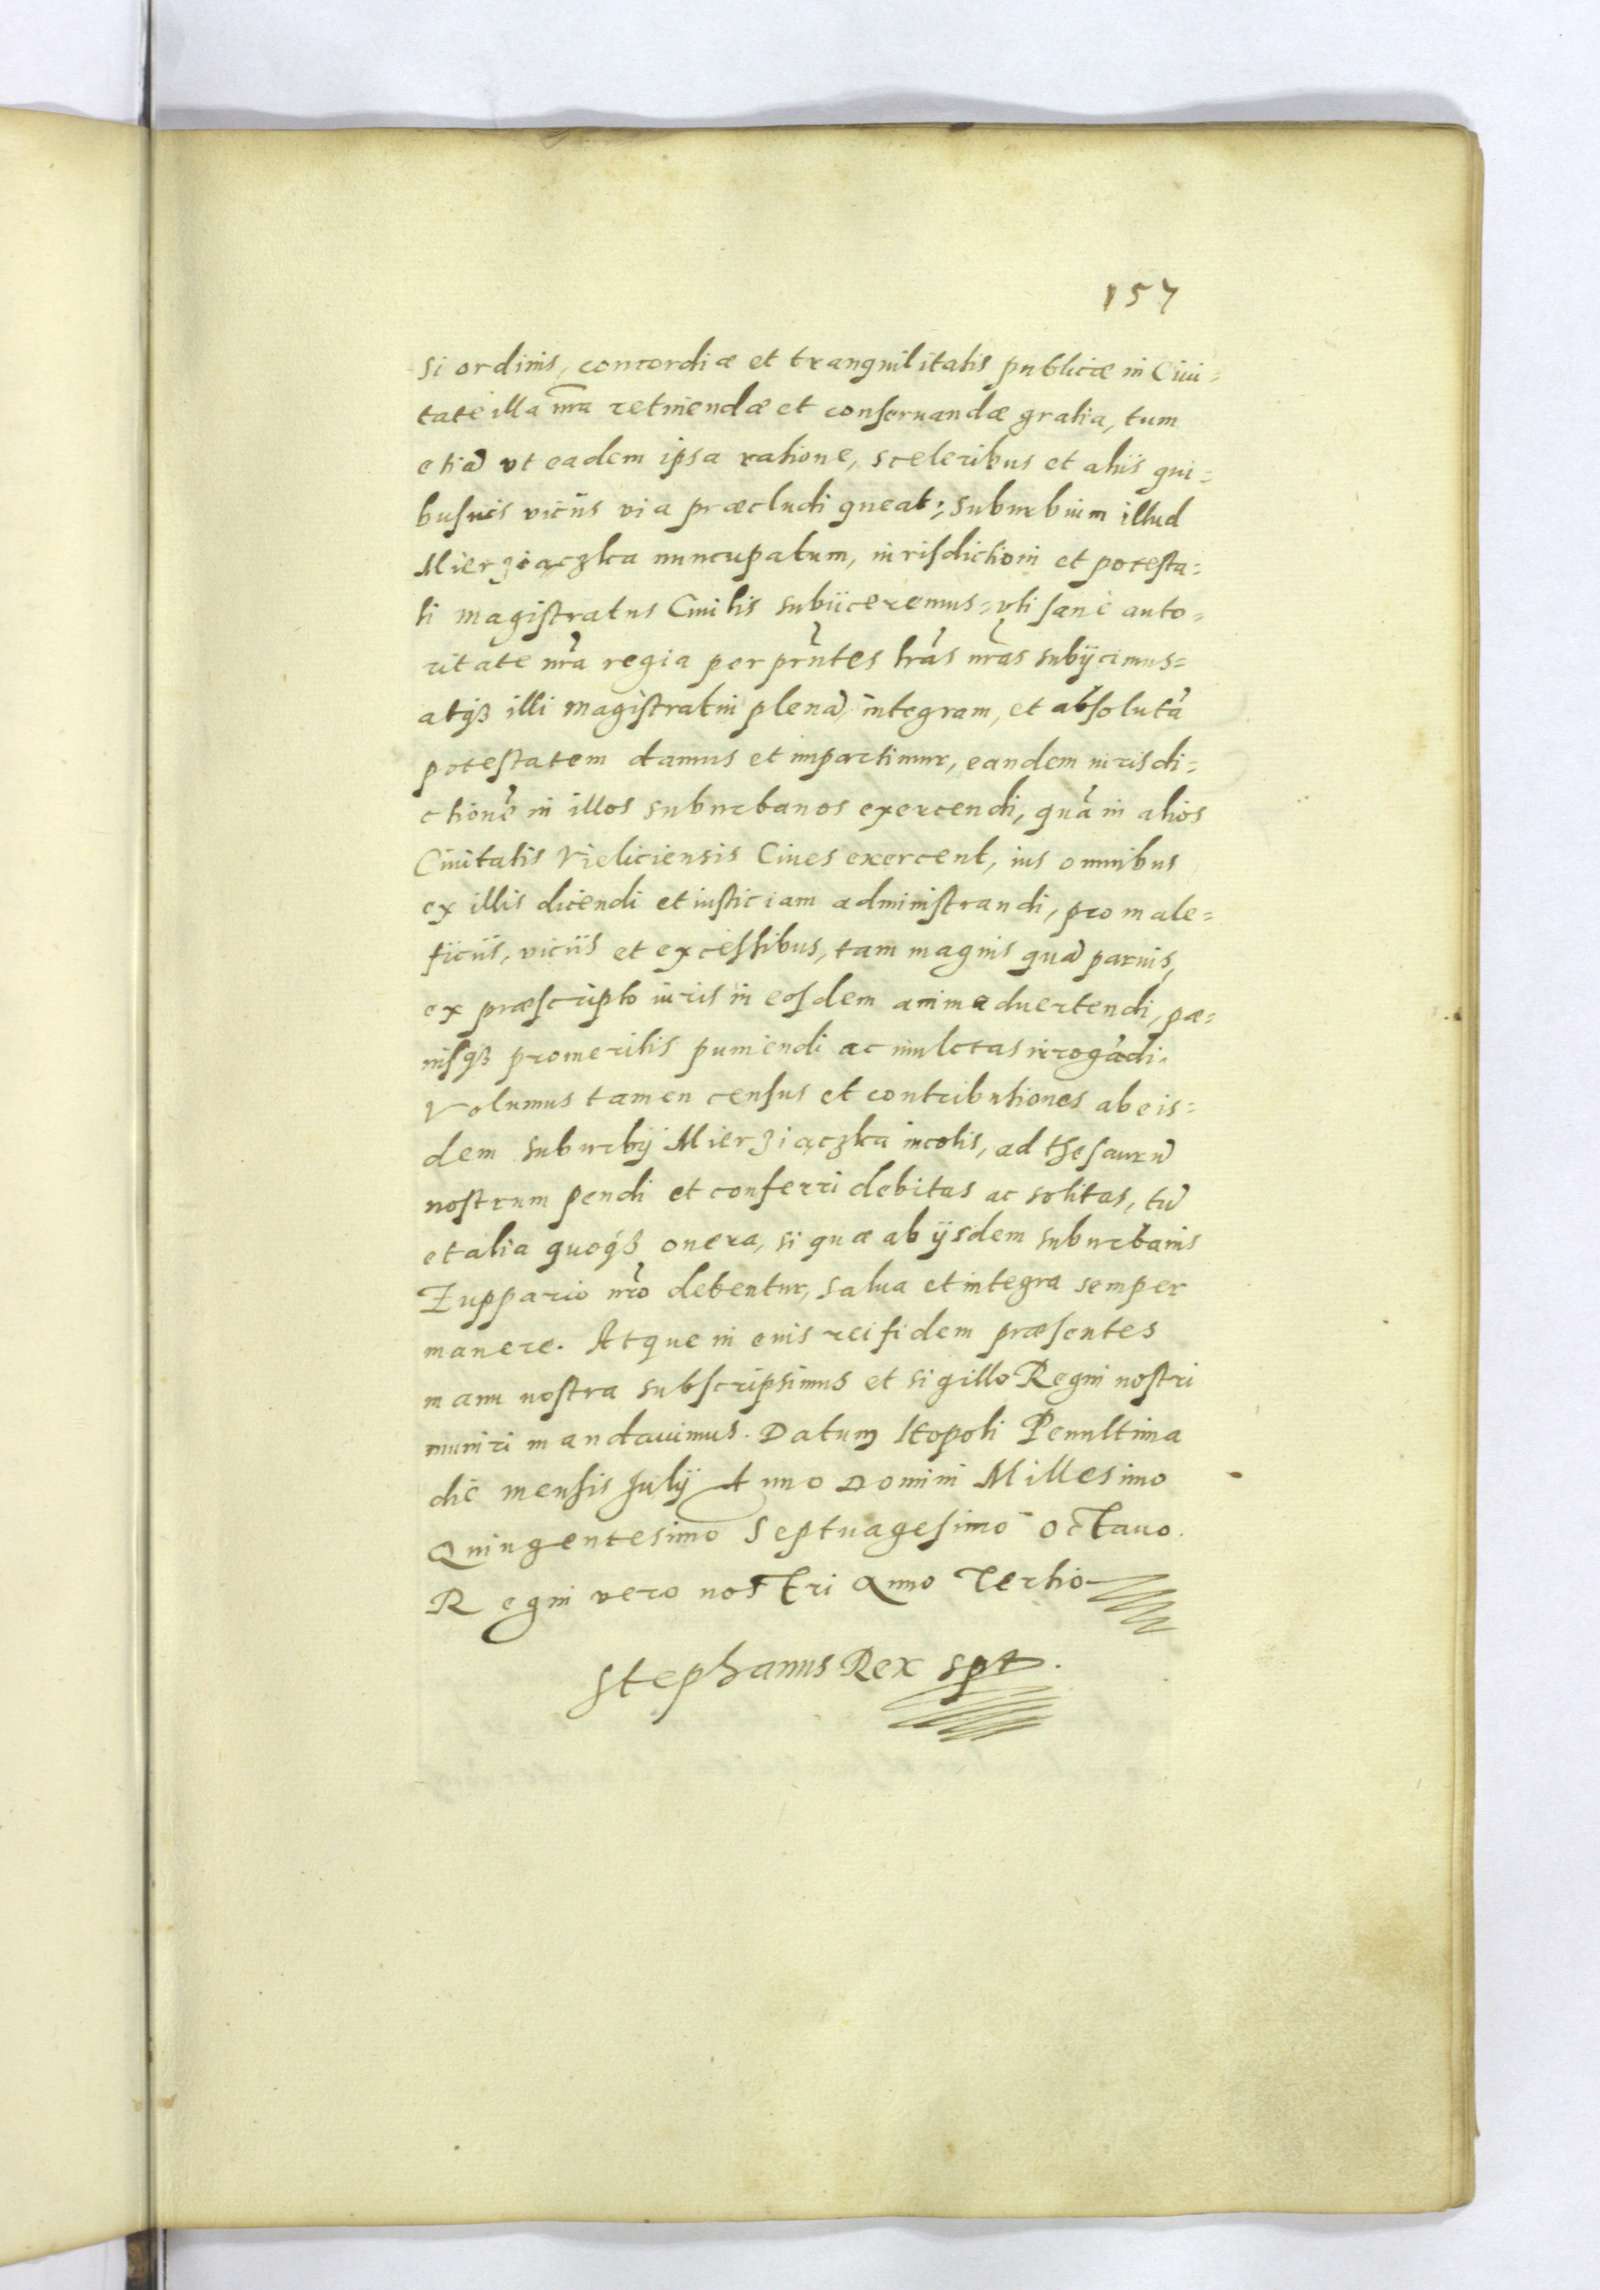 157
si ordinis, concordiæ et tranquilitatis publicæ in Ciui=
tate illa nr̃a retinendæ et conseruandæ gratia, tum
etiã vt eadem ipsa ratione, sceleribus et aliis qui=
busuis viciis via præcludi queat: suburbium illud
Mierziączka nuncupatum, iurisdictioni et potesta=
ti magistratus Ciuilis subiiceremus= vti sanè auto=
ritate nr̃a regia per pr̃ntes lr̃as nr̃as subijcimus=
atqꝫ illi magistratui plenã, integram, et absolutã
potestatem damus et impartimur, eandem iurisdi=
ctionẽ in illos suburbanos exercendi, quã in alios
Ciuitatis Vieliciensis Ciues exercent, ius omnibus
ex illis dicendi et iusticiam administrandi, pro male=
ficiis, viciis et excessibus, tam magnis quã paruis,
ex præscripto iuris in eosdem animaduertendi, pæ=
nisqꝫ promeritis puniendi ac mulctas irrogãdi.
Volumus tamen census et contributiones ab eis=
dem suburbij Mierziączka incolis, ad thesaurũ
nostrum pendi et conferri debitas ac solitas, tũ
et alia quoqꝫ onera, si quæ ab ijsdem suburbanis
Zuppario nr̃o debentur, salua et integra semper
manere. Atque in euis rei fidem præsentes
manu nostra subscripsimus et sigillo Regni nostri
muniri mandauimus. Datum Leopoli Penultima
die mensis Julij Anno Domini Millesimo
Quingentesimo Septuagesimo octauo.
Regni vero nostri Anno Tertio
Stephanus Rex spt.